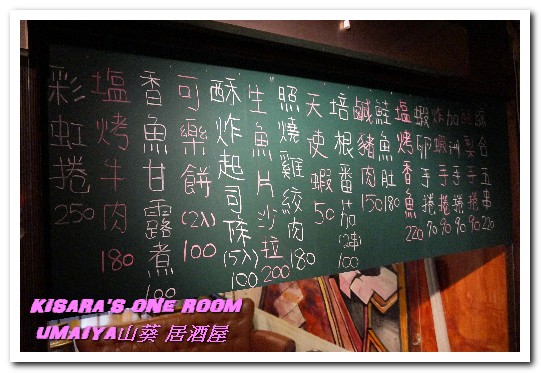 彩虹捲 250
塩烤牛肉 180
香魚甘露煮 100
可樂餅 (2入) 100
酥炸起司條 (5入) 100
生魚片沙拉 200
照燒雞絞肉 180
天使蝦 50
培根番茄 (2串) 100
鹹豬肉 150
鮭魚肚 180
塩烤香魚 220
蝦卵手捲 90
炸蝦手捲 90
加州手捲 90
手捲 90
五串 220
KiSARA'S ONE ROOM
UMAiYA山葵 居酒屋